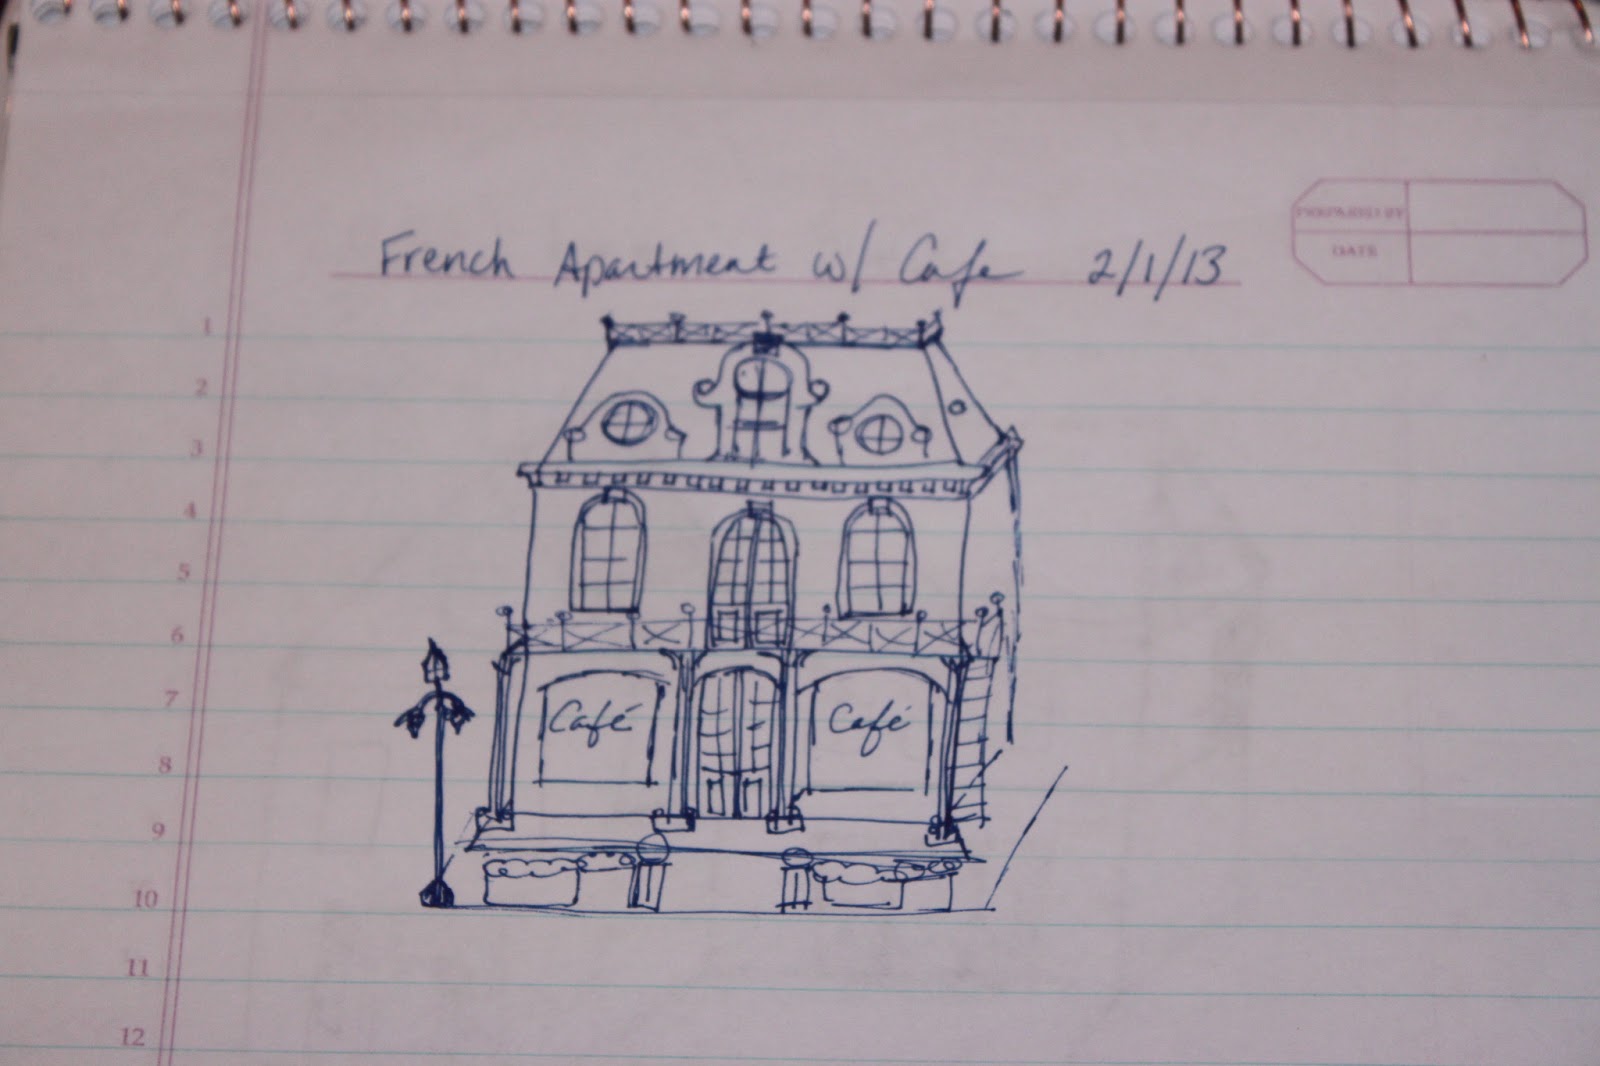 PREPARED BY
DATE
French Apartment w/ Cafe 2/1/13
1
2
3
4
5
6
7
Café Café
8
9
10
11
12